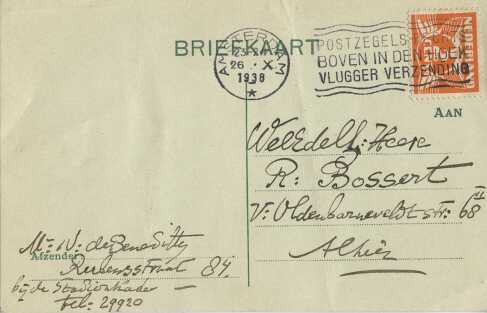 BRIEFKAART
AMSTERDAM
26 . X
1938
POSTZEGELS
BOVEN IN DEN HOEK
VLUGGER VERZENDING
NEDERLAND
AAN
WelEdelh: Heer
R: Bossert
v: Oldenbarneveldtstr: 68 II
Alhier
Afzender:
Mr. N: de Beneditty
Rubensstraat 84.
bij de Stadionkade
tel: 29920